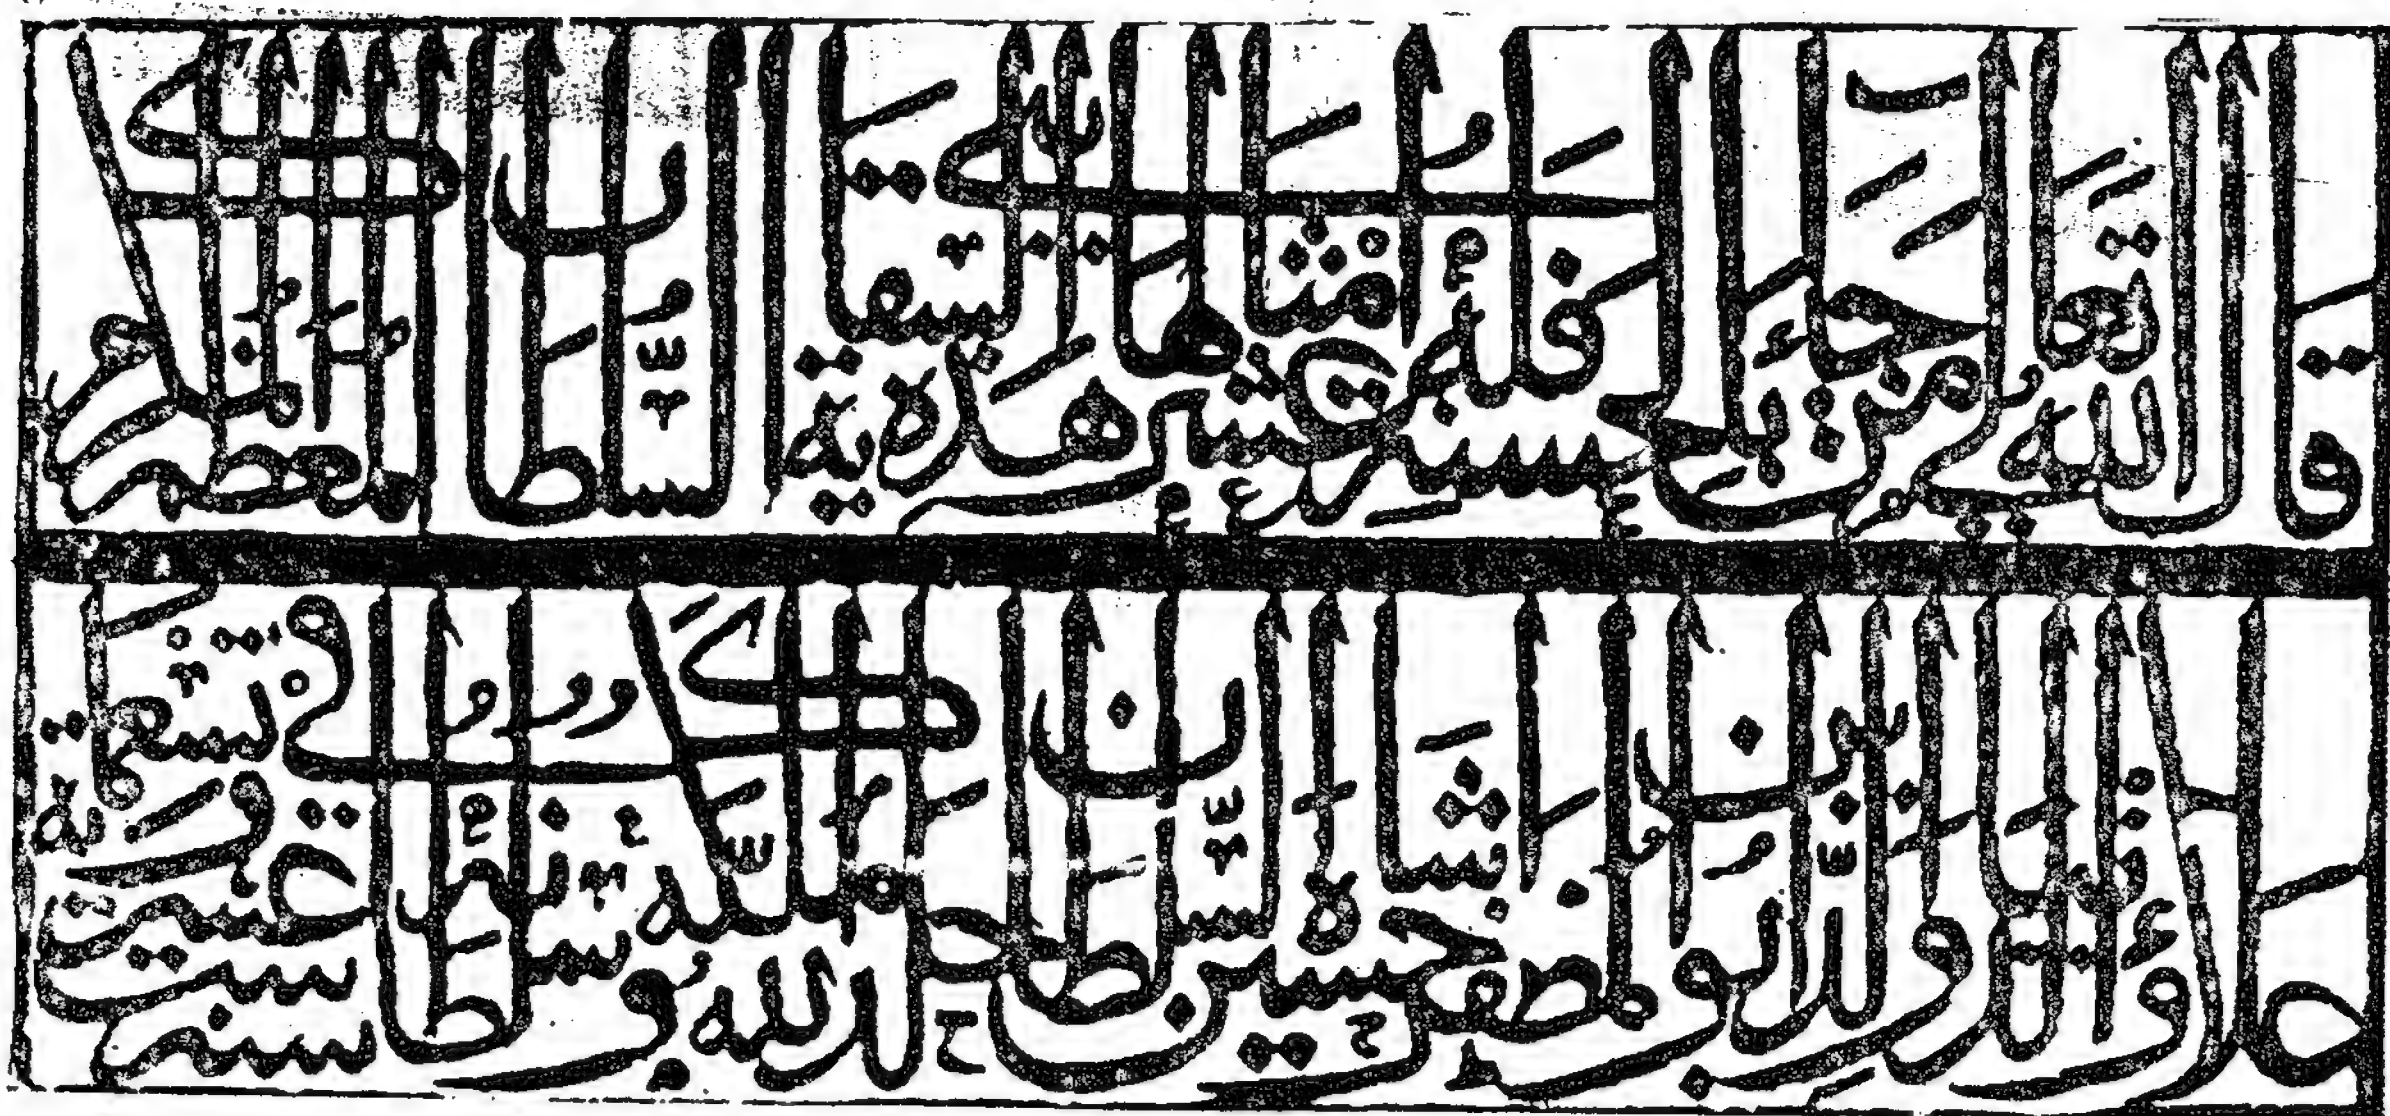 قال الله تعالى من جاء بالحسنة فله عشر امثالها بنى هذه السقاية السلطان المعظم المكرم
علاء الدنيا والدين ابو المظفر حسين شاه السلطان خلد الله ملكه وسلطانه في سنة ست عشر وتسعماية